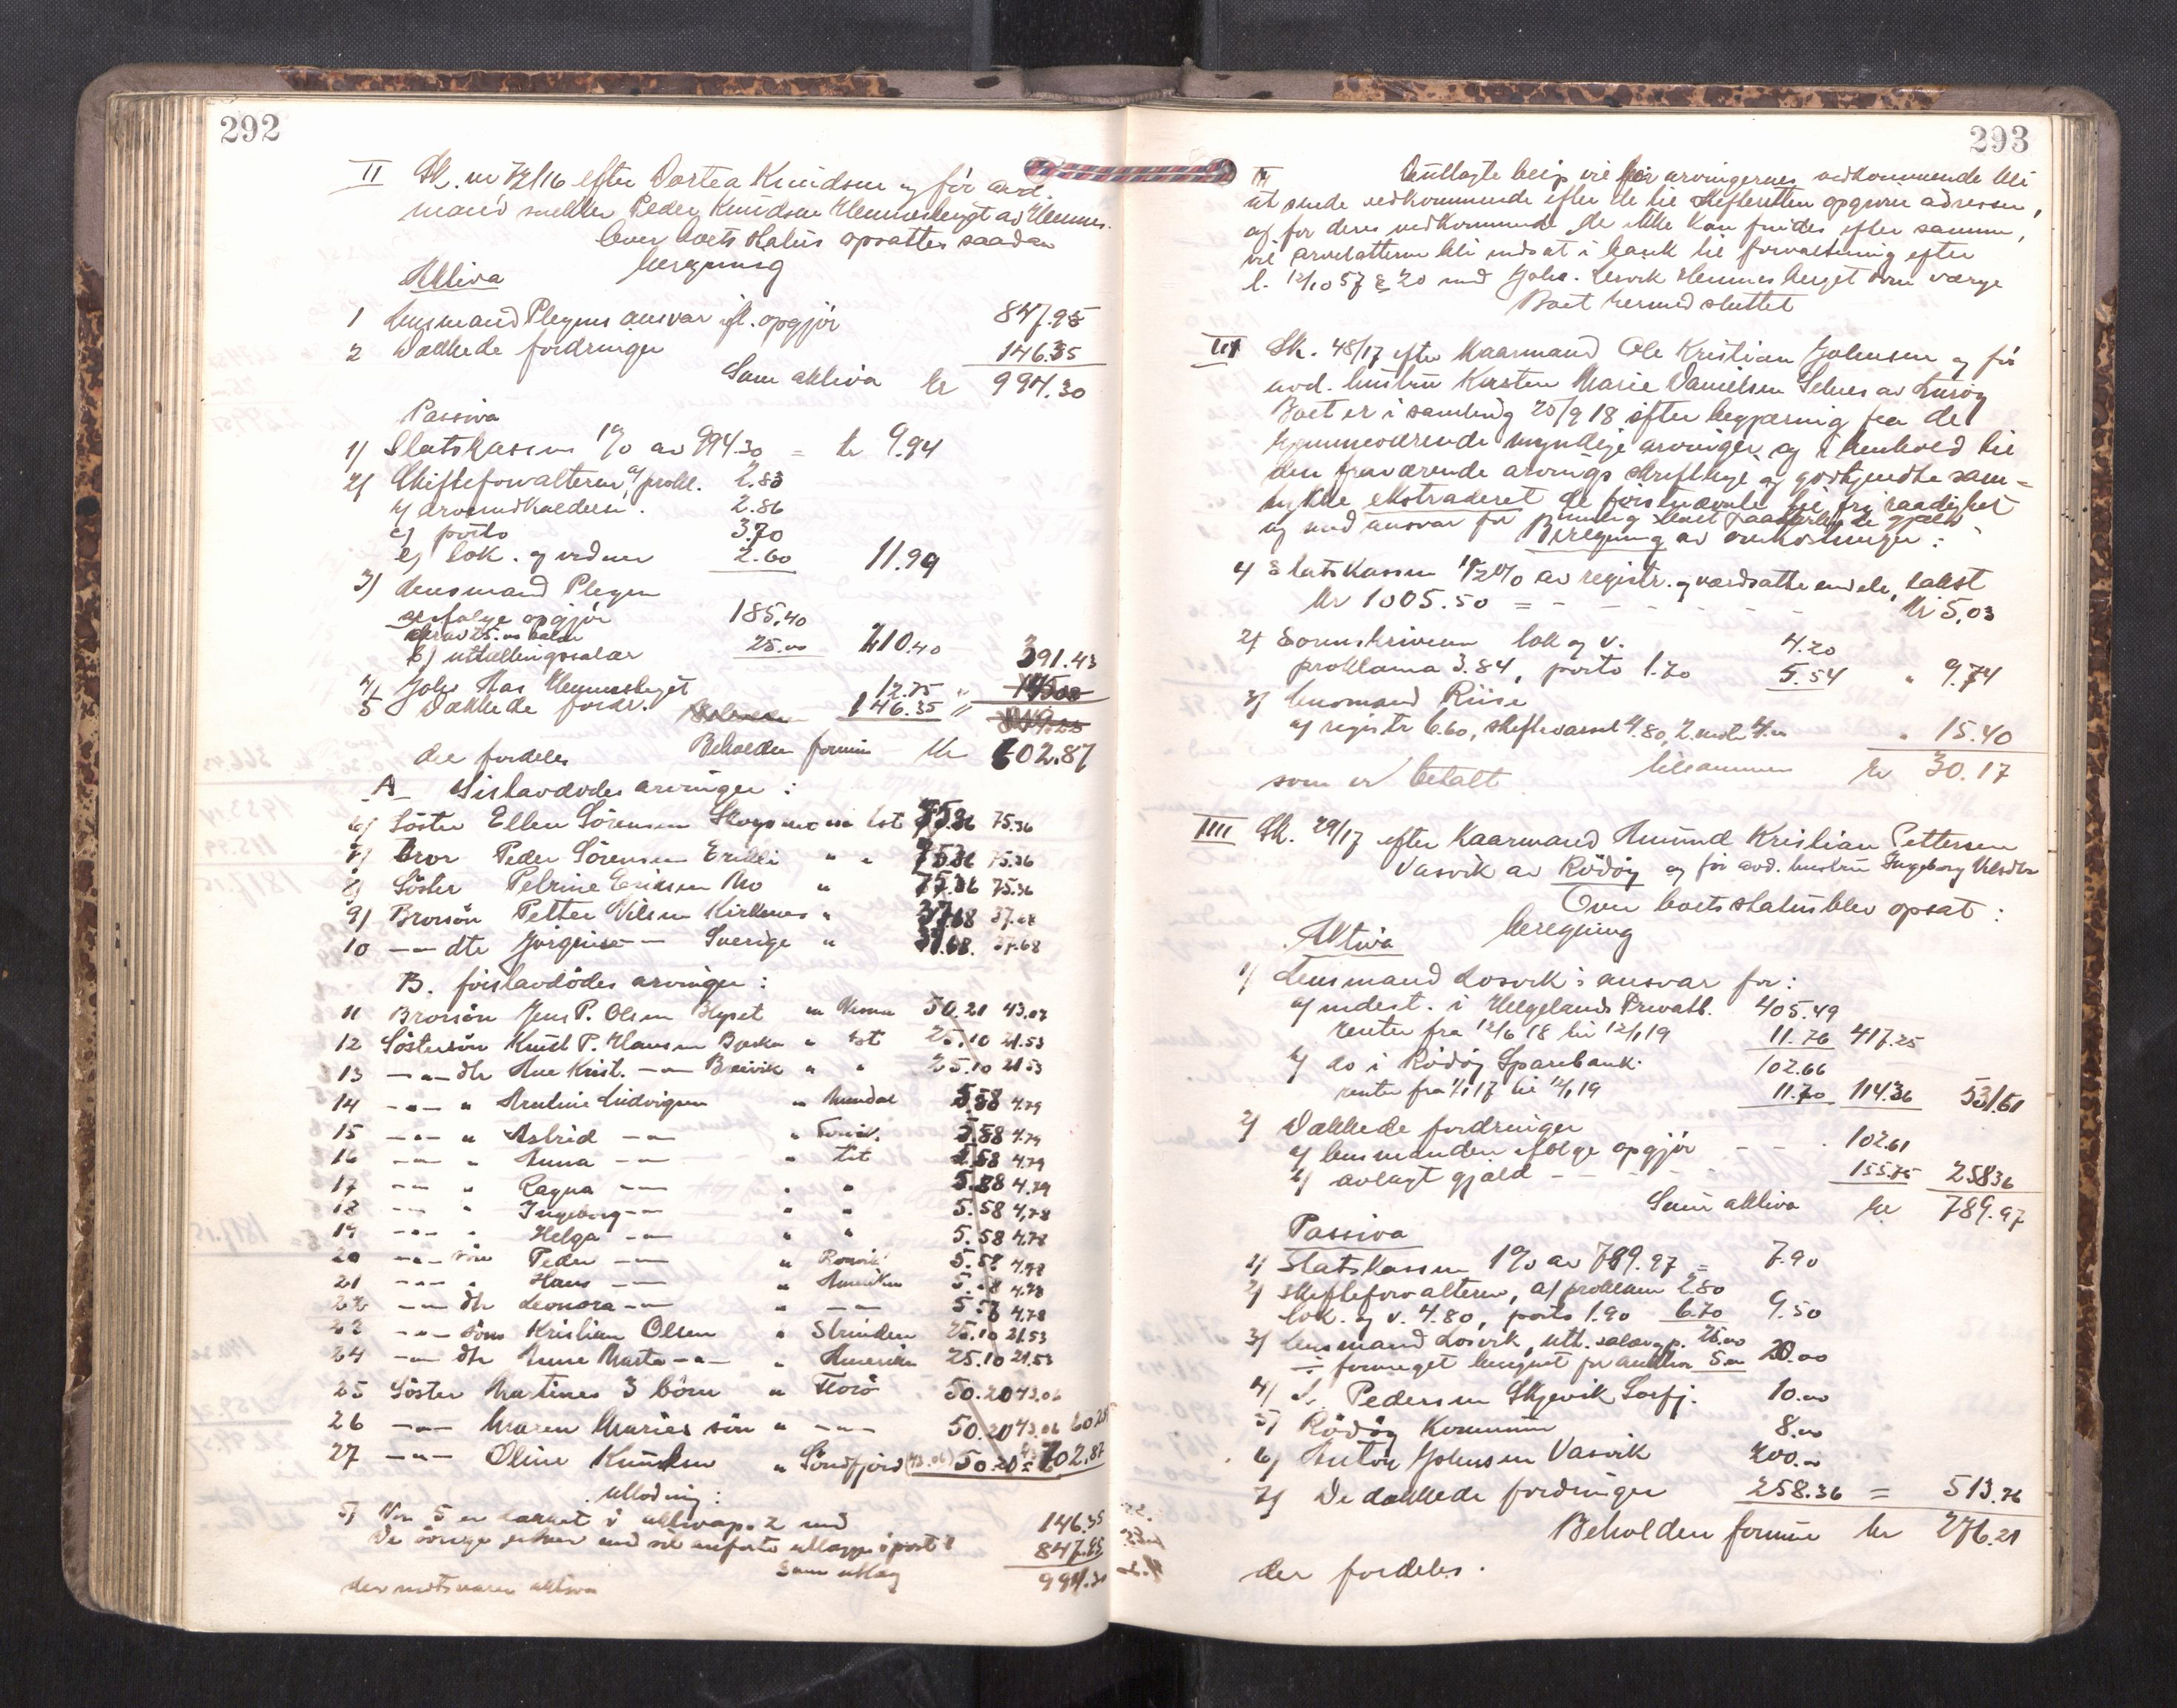 292
II Sk. nr 72/16 efter Dortea Knudsen og før avd.
mand snekker Peder Knudsen Hemnesberget av Hemnes.
Over boets status opsattes saadan
beregning
Aktiva
1 Lensmand Plegens ansvar ifl. opgjör 847.95
2 Dækkede fordringer 146.35
Sum aktiva kr 994.30
Passiva
1) Statskassen 1% av 994.30 = kr 9.94
2) Skifteforvalteren a/ prokl. 2.83
b) arveindkaldelse 2.86
c) porto 3.70
d) lok. og vedmer 2.60 11.99
3) Lensmand Plegen
a) ifølge opgjör 185.40
b) utlællingssalær 25.00 210.40 391.43
4) Johs Aas Hemnesberget 12.75 "
5 Dækkede fordr. 146.35 "
der fordeles Beholden formue kr 602.87
A Sistavdödes arvinger :
6) Söster Ellen Sörensen Lot 75.36 75.36
7) Bror Peder Sörensen " " 75.36 75.36
8) Söster Petrine Eriksen Mo " 75.36 75.36
9) Brorsön Petter Nilsen Kirkenes " 37.68 37.68
10 —"— dtr Jörgine —"— Sverige " 37.68. 37.68
B. förstavdödes arvinger :
11 Brorsön Jens P. Olsen 50.21 43.07
12 Söstersön Knut P. Hansen " Lot 25.10 21.53
13 —"— dtr Ane Krist. —"— Breivik " " 25.10 21.53
14 —"— " Ludvigsen " 5.58 4.79
15 —"— " Astrid —"— " 5.58 4.79
16 —"— " Anna —"— " Lot 5.58 4.79
17 —"— " Ragna —"— " " 5.58 4.79
18 —"— " Ingeborg —"— " " 5.58 4.78
19 —"— " Helga —"— " " 5.58 4.78
20 —"— sön Peder —"— " 5.58 4.78
21 —"— " Hans —"— " Amerika 5.58 4.78
22 —"— dtr Leonora —"— " —"— 5.58 4.78
23 —"— sön Kristian Olsen " Strinden 25.10 21.53
24 —"— dtr Anne Marta —"— " Amerika 25.10 21.53
25 Söster Martines 3 börn " Florö 50.20 43.06
26 —"— Maren Maries sön " —"— 50.20 43.06
27 —"— Oline Knudsen " Söndfjord (43.06) 50.20 = 602.87
utlodning :
5) No 5 er dækket i aktivap. 2 med 146.35
De övrige poster med de anförte utlægges i post 1 847.95
der motsvarer aktiva Sum utlæg 994.30
293
II Utlagte belöp vil för arvingernes vedkommende bli
at sende vedkommende efter de til skifteretten opgivne adresser,
og for deres vedkommende, der ikke kan findes efter samme,
vil arvelatterne bli indsat i bank til forvaltning efter
l. 12/10 57 § 20 med Johs. Lervik Hemnesberget som værge
Boet hermed sluttet
III Sk. 48/17 efter kaarmand Ole Kristian Johnsen og för
avd. hustru Karsten Marie Danielsen Selnes av Luröy
Boet er i samling 25/9 18 efter begjæring fra de
hjemmeværende myndige arvinger og i henhold til
den fraværende arvings skriftlige og godkjendte sam=
tykke ekstraderet de förstnævnte til fri raadighet
og med ansvar for mulig boet paahvilende gjæld
Beregning av omkostninger :
1) Statskassen 1/2% av registr. og værdsatte eiendele, takst
kr 1005.50 = - - - - - kr 5,03
2) Sorenskriveren lok og v. 4.20
proklama 3.84, porto 1.70 5.54 " 9.74
3) Lensmand Riise
a) registr 6.60, skiftevarsel 4.80, 2 møter 4.00 " 15.40
som er betalt tilsammen kr 30.17
IIII Sk. 29/17 efter kaarmand Amund Kristian Pettersen
Vasvik av Rödöy og för avd. hustru Ingeborg Nilsdtr
Over boets status blev opsat :
Aktiva beregning
1) Lensmand Losvik's ansvar for :
a) indest. i Helgelands Privatb. 405.49
renter fra 12/6 18 til 12/1 19 11.76 417.25
b) do i Rödöy Sparebank 102.66
renter fra 1/1 17 til 12/1 19 11.70 114.36 531.61
2) Dækkede fordringer
a) lensmanden ifölge opgjör - - - 102.61
b) avlagt gjæld - - - - 155.75 258.36
Sum aktiva kr 789.97
Passiva
1) Statskassen 1% av 789.97 = 7.90
2) skifteforvalteren, a) proklam 2.80
lok. og v. 4.80, porto 1.90 6.70 9.50
3) Lensmand Losvik, utl. salær p. 25.00
÷ formeget beregnet for auktion 5.00 20.00
4) J. Pedersen Skjevik Sorfj. 10.00
5) Rödöy Kommune 8.00
6) Anton Johnsen Vasvik 200.00
7) De dækkede fordringer 258.36 = 513.76
Beholden formue kr 276.21
der fordeles.